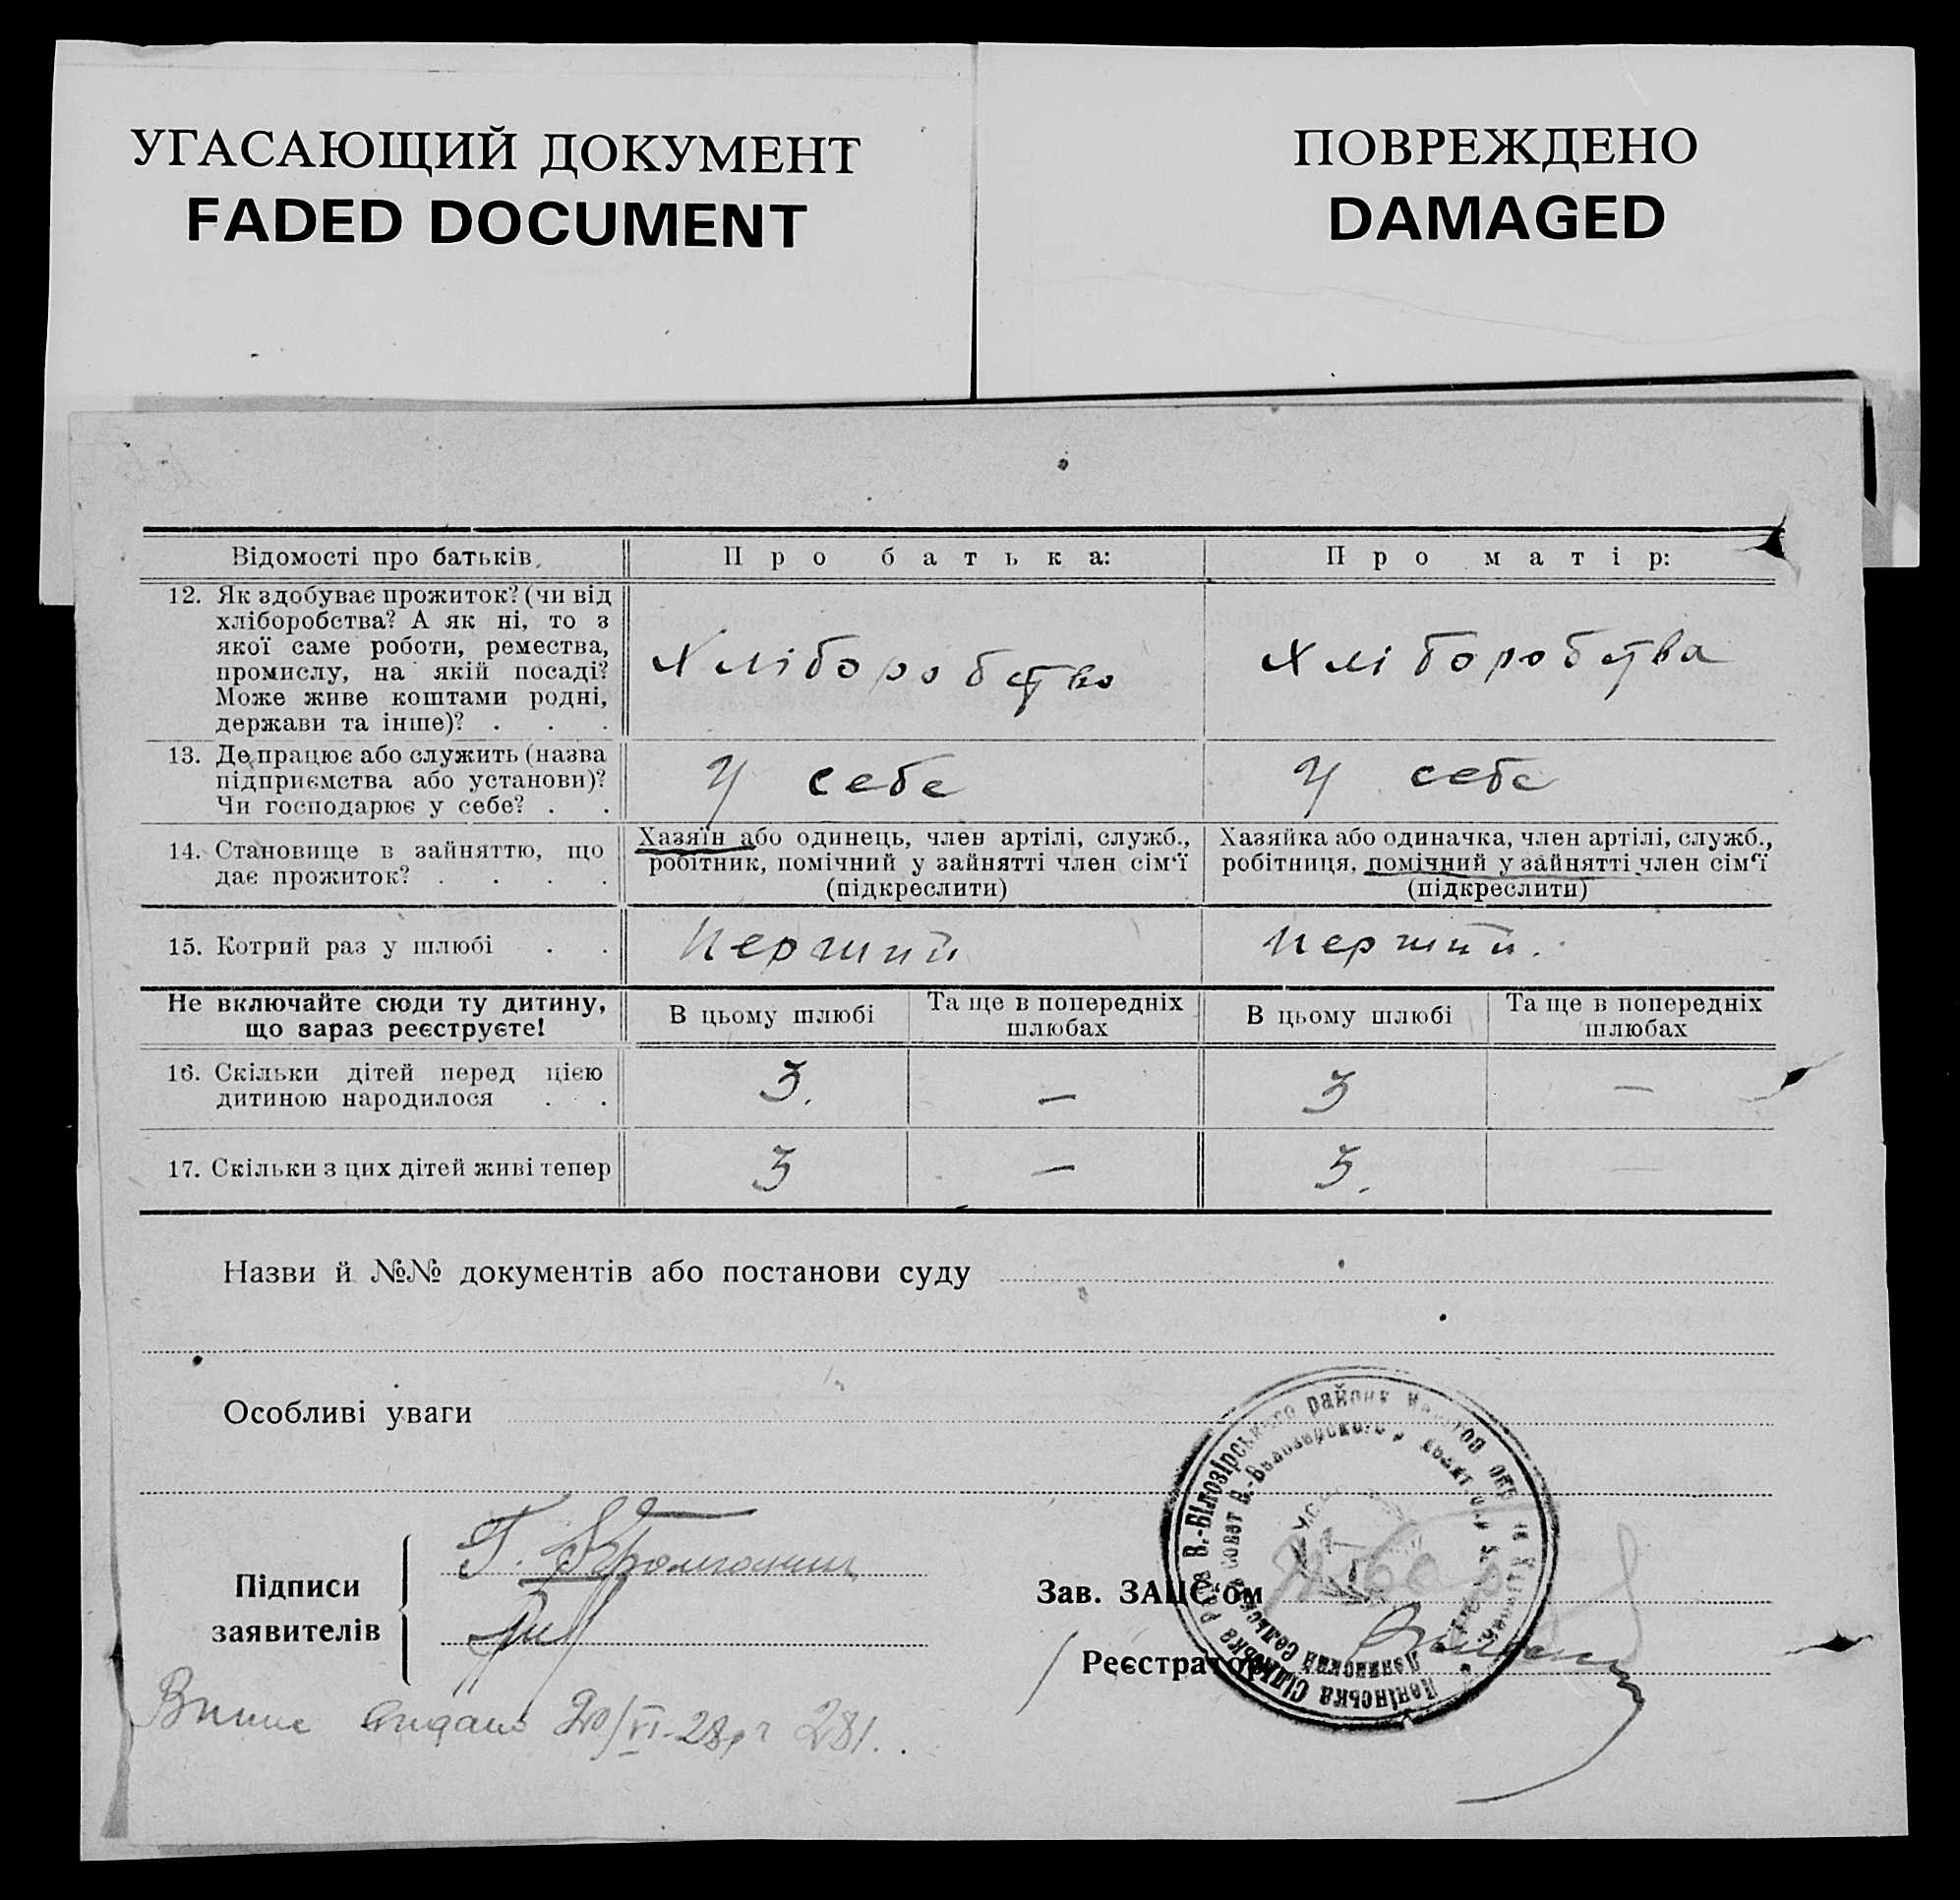 УГАСАЮЩИЙ ДОКУМЕНТ
FADED DOCUMENT
ПОВРЕЖДЕНО
DAMAGED
Відомості про батьків
Про батька:
Про матір:
12. Як здобуває прожиток? (чи від
хліборобства? А як ні, то з
якої саме роботи, ремества,
промислу, на якій посаді?
Може живе коштами родні,
держави та інше)? . . .
Хліборобство
Хліборобства
13. Де працює або служить (назва
підприємства або установи)?
Чи господарює у себе? . .
У себе
У себе
14. Становище в зайняттю, що
дає прожиток? . . . .
Хазяїн або одинець, член артілі, служб.,
робітник, помічний у зайнятті член сім‘ї
(підкреслити)
Хазяйка або одиначка, член артілі, служб.,
робітниця, помічний у зайнятті член сім‘ї
(підкреслити)
15. Котрий раз у шлюбі . .
Перший
Перший.
Не включайте сюди ту дитину,
що зараз реєструєте!
В цьому шлюбі
Та ще в попередніх
шлюбах
В цьому шлюбі
Та ще в попередніх
шлюбах
16. Скільки дітей перед цією
дитиною народилося . .
3. — 3 —
17. Скільки з цих дітей живі тепер
3 — 3. —
Назви й №№ документів або постанови суду
Особливі уваги
Підписи
заявителів
Г.
Зав. ЗАЦС‘ом
Реєстратор
Ленінська Сільська Рада В.-Білозірського району
Ленинский Сельский совет В.-Белозерского
Випис видано 20/VI-28р 281.